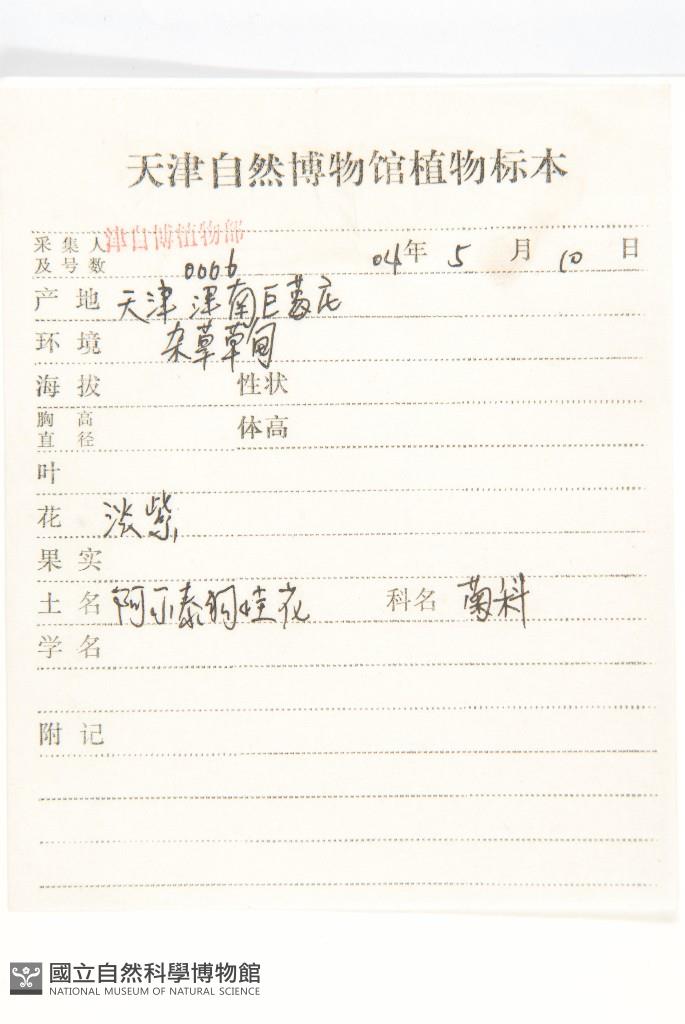 天津自然博物馆植物标本
采集人 津自博植物部
及号数 0006 04年 5 月 10 日
产地 天津 津南巨葛庄
环境 杂草草甸
海拔 性状
胸高
直径 体高
叶
花 淡紫
果实
土名 阿尔泰狗娃花 科名 菊科
学名
附记
國立自然科學博物館
NATIONAL MUSEUM OF NATURAL SCIENCE